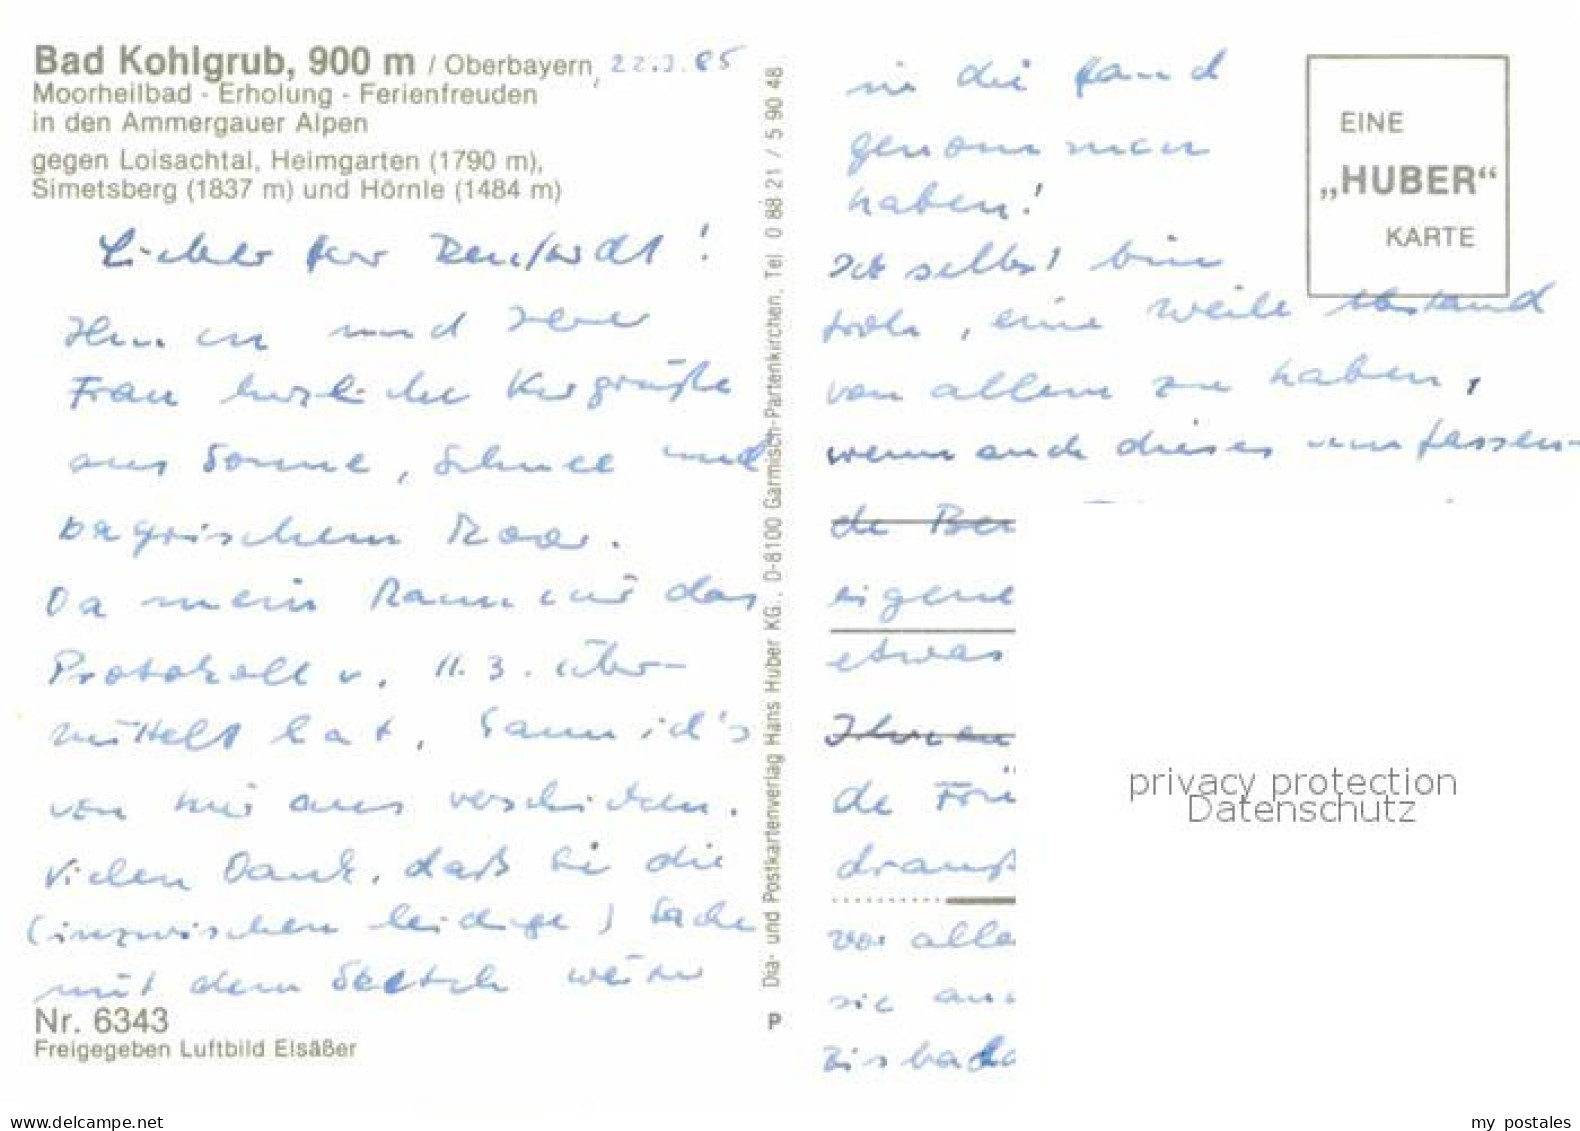 Bad Kohlgrub, 900 m / Oberbayern, 22.3.85
Moorheilbad - Erholung - Ferienfreuden
in den Ammergauer Alpen
gegen Loisachtal, Heimgarten (1790 m),
Simetsberg (1837 m) und Hörnle (1484 m)
Lieber Herr !
Ihnen und Ihrer
Frau herzliche Kurgrüße
aus Sonne, Schnee und
bayrischem Moor.
Da mein Mann mir das
Protokoll v. 11.3. über-
mittelt hat, kann ich's
von hier aus verschicken.
Vielen Dank, daß Sie die
(inzwischen leidige) Sache
mit dem Sketsch weiter
Nr. 6343
Freigegeben Luftbild Elsäßer
P Dia- und Postkartenverlag Hans Huber KG., D-8100 Garmisch-Partenkirchen, Tel. 0 88 21 / 5 90 48
in die Hand
genommen
haben!
Ich selbst bin
froh, eine Weile Abstand
von allem zu haben,
wenn auch dieses umfassen-
de
eigene
etwas
Ihnen
de
drauß
vor alle
sie
EINE
„HUBER“
KARTE
privacy protection
Datenschutz
www.delcampe.net
my postales